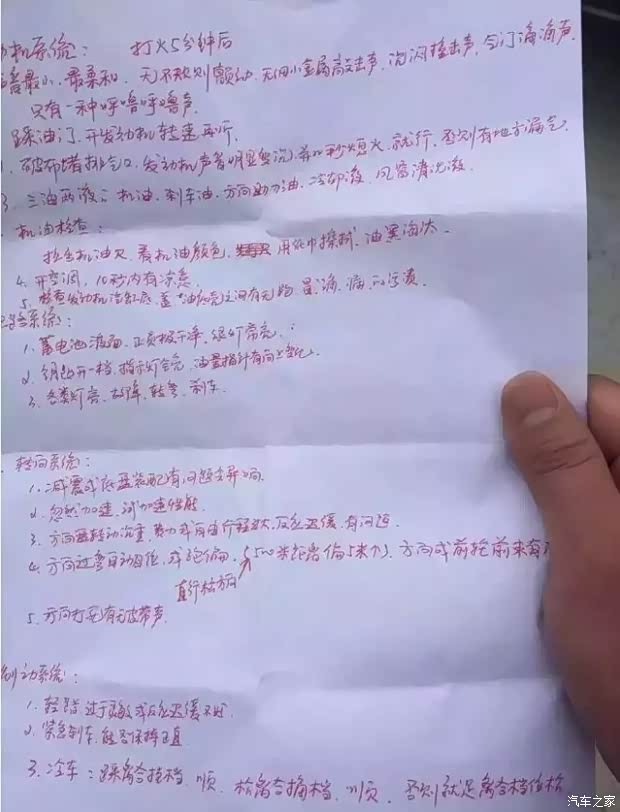 机系统: 打火5分钟后
最小、最柔和、无不规则颤动、无细小金属高敲击声、沉闷撞击声、气门滴滴声
只有一种呼噜呼噜声
踩油门、开发动机转速再听
破布堵排气口、发动机声音明显 熄火、就行、否则有地方漏气
3. 三油两液: 机油、刹车油、方向助力油、冷却液、风窗清洗液
机油检查:
拔出机油尺、看机油颜色、用纸巾擦拭、油黑淘汰.
4. 开空调, 10秒内有凉意.
5. 检查发动机 有无 渍
系统:
1. 蓄电池液面、正负极干净、绿灯常亮.
2. 钥匙开一档、指示灯全亮、油量指针有向上
3. 各类灯 、故障、转弯、刹车.
转向系统:
1. 减震或底盘装配有问题会异响.
2. 忽然加速, 减加速性能
3. 方向盘转动沉重、 或自由行程过大、反应迟缓, 有问题
4. 方向过弯自动回位, 或跑偏, 500米距离偏5米 方向或前轮前束有
直行松方向
5. 方向打死有无皮带声
制动系统:
1. 轻踏过于灵敏或反应迟缓不好
2. 紧急刹车, 能否保持正直
3. 冷车: 踩离合挂档、顺、松离合摘档、顺、否则就是离合档位
汽车之家